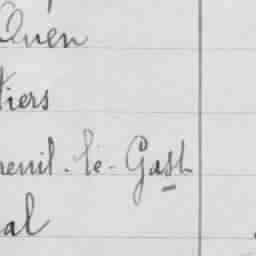 Ouen
tiers
reuil-le-Gast
al